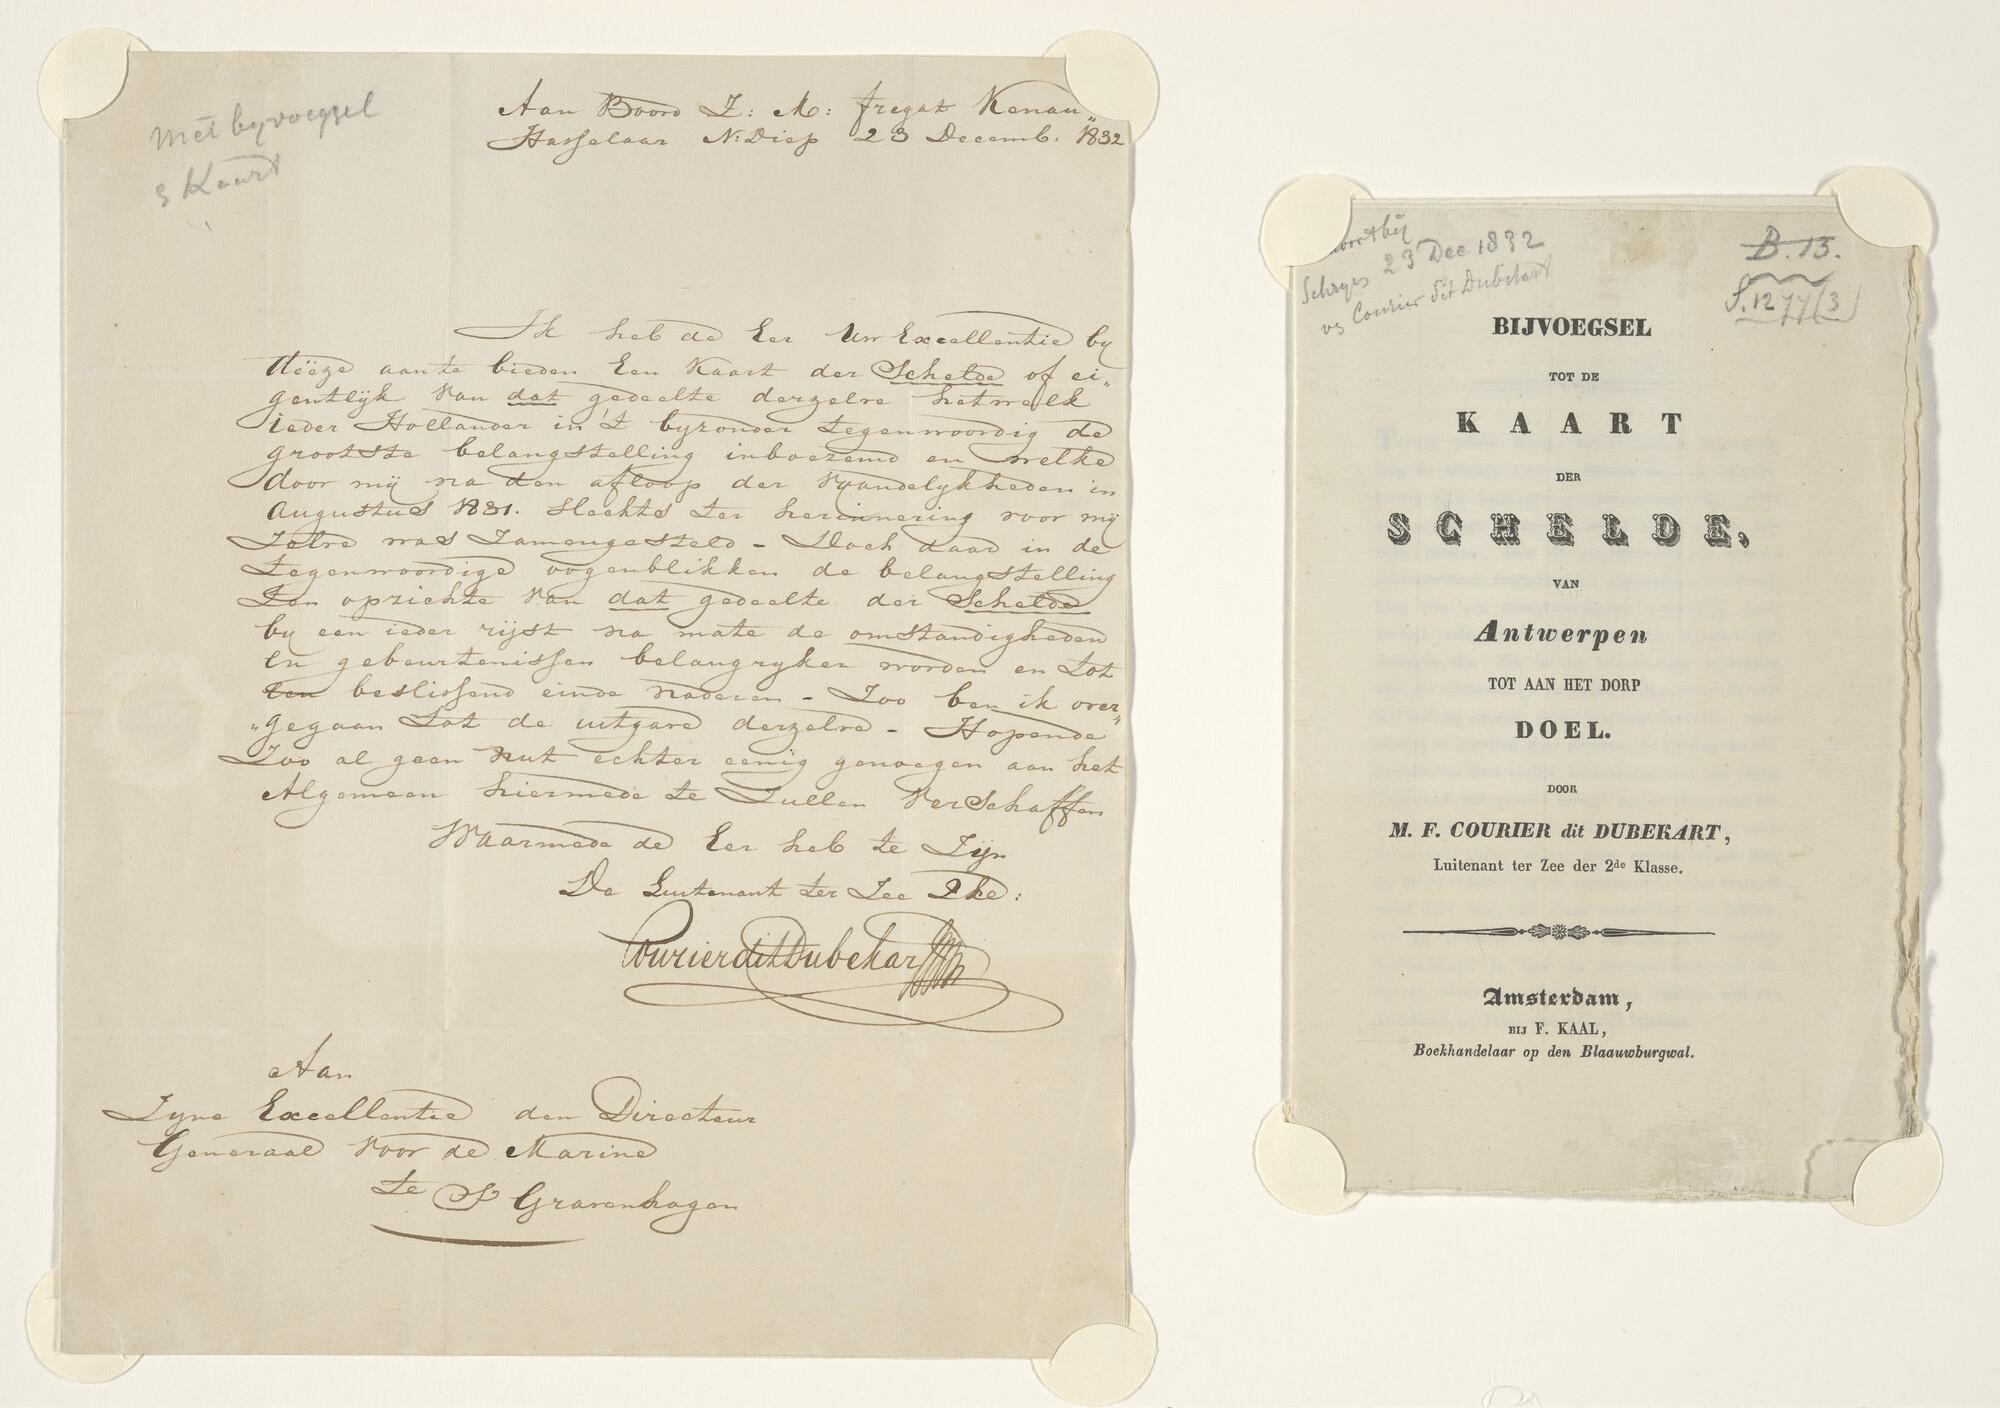 Met byvoegsel
& Kaart
Aan Boord Z: M: fregat Kenau„
Hasselaar N: Diep 23 Decemb. 1832
Ik heb de Eer Uw Excellentie by
deeze aante bieden Een Kaart der Schelde of ei„
gentlijk van dat gedeelte derzelve hetwelk
ieder Hollander in 't byzonder tegenwoordig de
grootste belangstelling inboezemd en welke
door mij na den afloop der Vyandelykheden in
Augustus 1831. slechts ter herinnering voor mij
Zelve was Zamengesteld - Doch daar in de
tegenwoordige oogenblikken de belangstelling
ten opzichte van dat gedeelte der Schelde
by een ieder rijst na mate de omstandigheden
en gebeurtenissen belangryker worden en tot
een beslissend einde naderen - Zoo ben ik over„
„gegaan tot de uitgave derzelve - Hopende
Zoo al geen nut echter eenig genoegen aan het
Algemeen hiermede te Zullen Verschaffen
Waarmede de Eer heb te Zijn
De Luitenant ter Zee 2ke:
Courier dit Dubekart
Aan
Zyne Excellentie den Directeur
Generaal voor de Marine
te S Gravenhagen
23 Dec 1832
vs Courier dit Dubekart
B. 13.
S. 1277(3)
BIJVOEGSEL
TOT DE
KAART
DER
SCHELDE,
VAN
Antwerpen
TOT AAN HET DORP
DOEL.
DOOR
M. F. COURIER dit DUBEKART,
Luitenant ter Zee der 2de Klasse.
Amsterdam,
BIJ F. KAAL,
Boekhandelaar op den Blaauwburgwal.